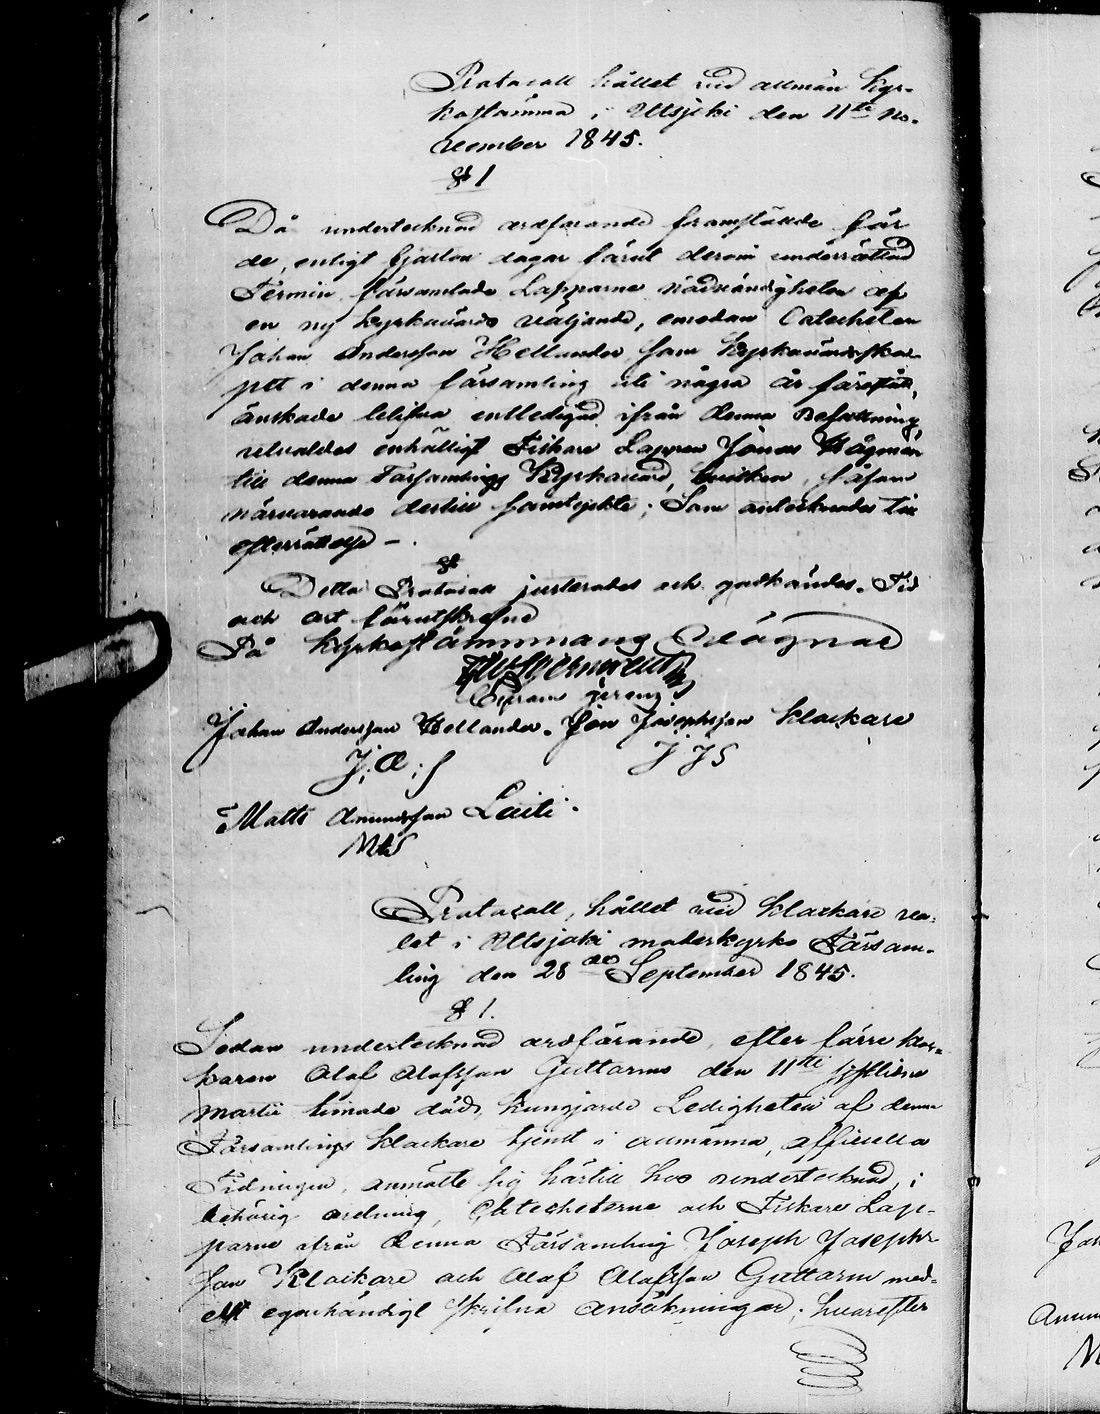 Protocoll hållet vid allmän Kyr-
kostämma i Utsjoki den 11te No-
vember 1845.
§ 1
Då undertecknad ordförande framställde för
de, enligt fjorton dagar förut derom underrättad
Termin, församlade Lapparne nödvändigheten af
en ny kyrkovärds väljande, emedan Catecheten
Johan Andersson Hellander, som Kyrkovärdska-
pet i denna församling uti några år förestått,
önskade blifva entledigad ifrån denna Befattning,
utvaldes enhälligt Fiskare Lappen Jonas Högman
till denna Församlings Kyrkovärd, hvilken, såsom
närvarande dertill samtyckte; Som antecknades till
efterrättelse -.
§
Detta Protocoll justerades och godkändes. Tid
och ort förutskrefne
På Kyrkostämmans Vägnar
Johan Andersson Hellander. Jon Josephsson Klockare
J: A: S J J S
Matts Amundsson Laiti.
MAS
Protocoll, hållet vid Klockare va-
let i Utsjoki moderkyrko Försam-
ling den 28de September 1845.
§ 1.
Sedan undertecknad ordförande, efter förre Kloc-
karen Olof Olofsson Guttorms den 11te sistlidne
Martii timade död, kungjorde Ledigheten af denna
Församlings Klockare tjenst i allmänna, officiella
Tidningen, anmälte sig härtill hos undertecknad, i
behörig ordning, Catecheterne och Fiskare Lap-
parne ifrån denna Församling Joseph Josephs-
son Klockare och Olof Olofsson Guttorm med-
elst egenhändigt skrifna ansökningar; hvarefter